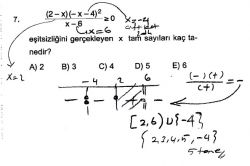 7. (2-x)(-x-4)² / x-6 ≥ 0 x=-4
çift katlı kök
x=6
eşitsizliğini gerçekleyen x tam sayıları kaç ta-
nedir?
x=2
A) 2 B) 3 C) 4 D) 5 E) 6
-4 2 6
(-)(+) / (+) = -
[2,6) ∪ {-4}
{2,3,4,5,-4}
5 tane